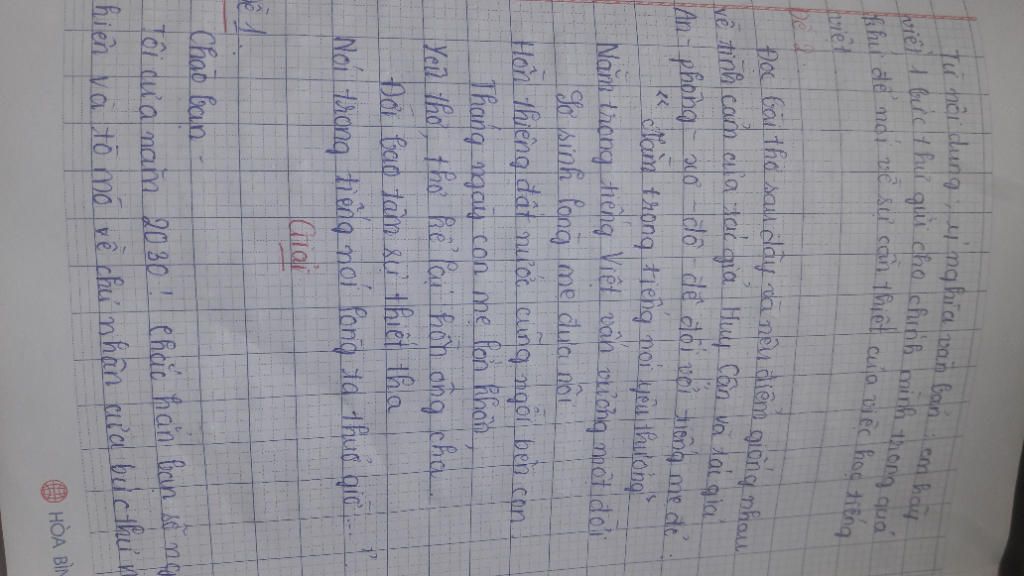 Từ nội dung, ý nghĩa văn bản, em hãy
viết 1 bức thư gửi cho chính mình trong quá
khứ để nói về sự cần thiết của việc học tiếng
việt
Đề 2
Đọc bài thơ sau đây và nêu điểm giống nhau
về tình cảm của tác giả Huy Cận và tác giả
An - phông - xơ - đô - đê đối với tiếng mẹ đẻ:
" Nằm trong tiếng nói yêu thương
Nằm trong tiếng Việt vấn vương một đời
Sơ sinh lòng mẹ đưa nôi
Hồn thiêng đất nước cũng ngồi bên con
Tháng ngày con mẹ lớn khôn,
Yêu thơ, thơ kể lại hồn ông cha
Đời bao tâm sự thiết tha
Nói trong tiếng nói lòng ta thuở giờ... "
Giải
Đề 1:
Chào bạn -
Tôi của năm 2030! Chắc hẳn bạn sẽ ng
hiên và tò mò về chủ nhân của bức thư n
HÒA BÌN